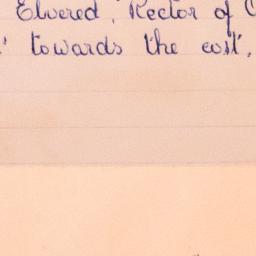 Elvered, Rector of
towards the cost,